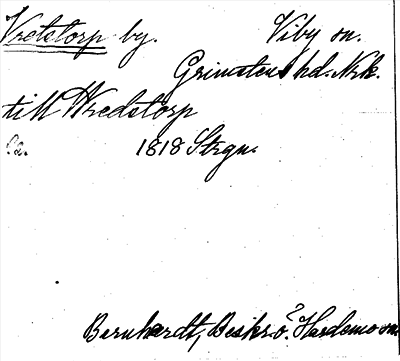 Vretstorp by. Viby sn.
Grimstens hd. Nrk.
till Wredstorp
1818 Strgn.
Bernhardt, Beskr. ö. Hardemo sn.